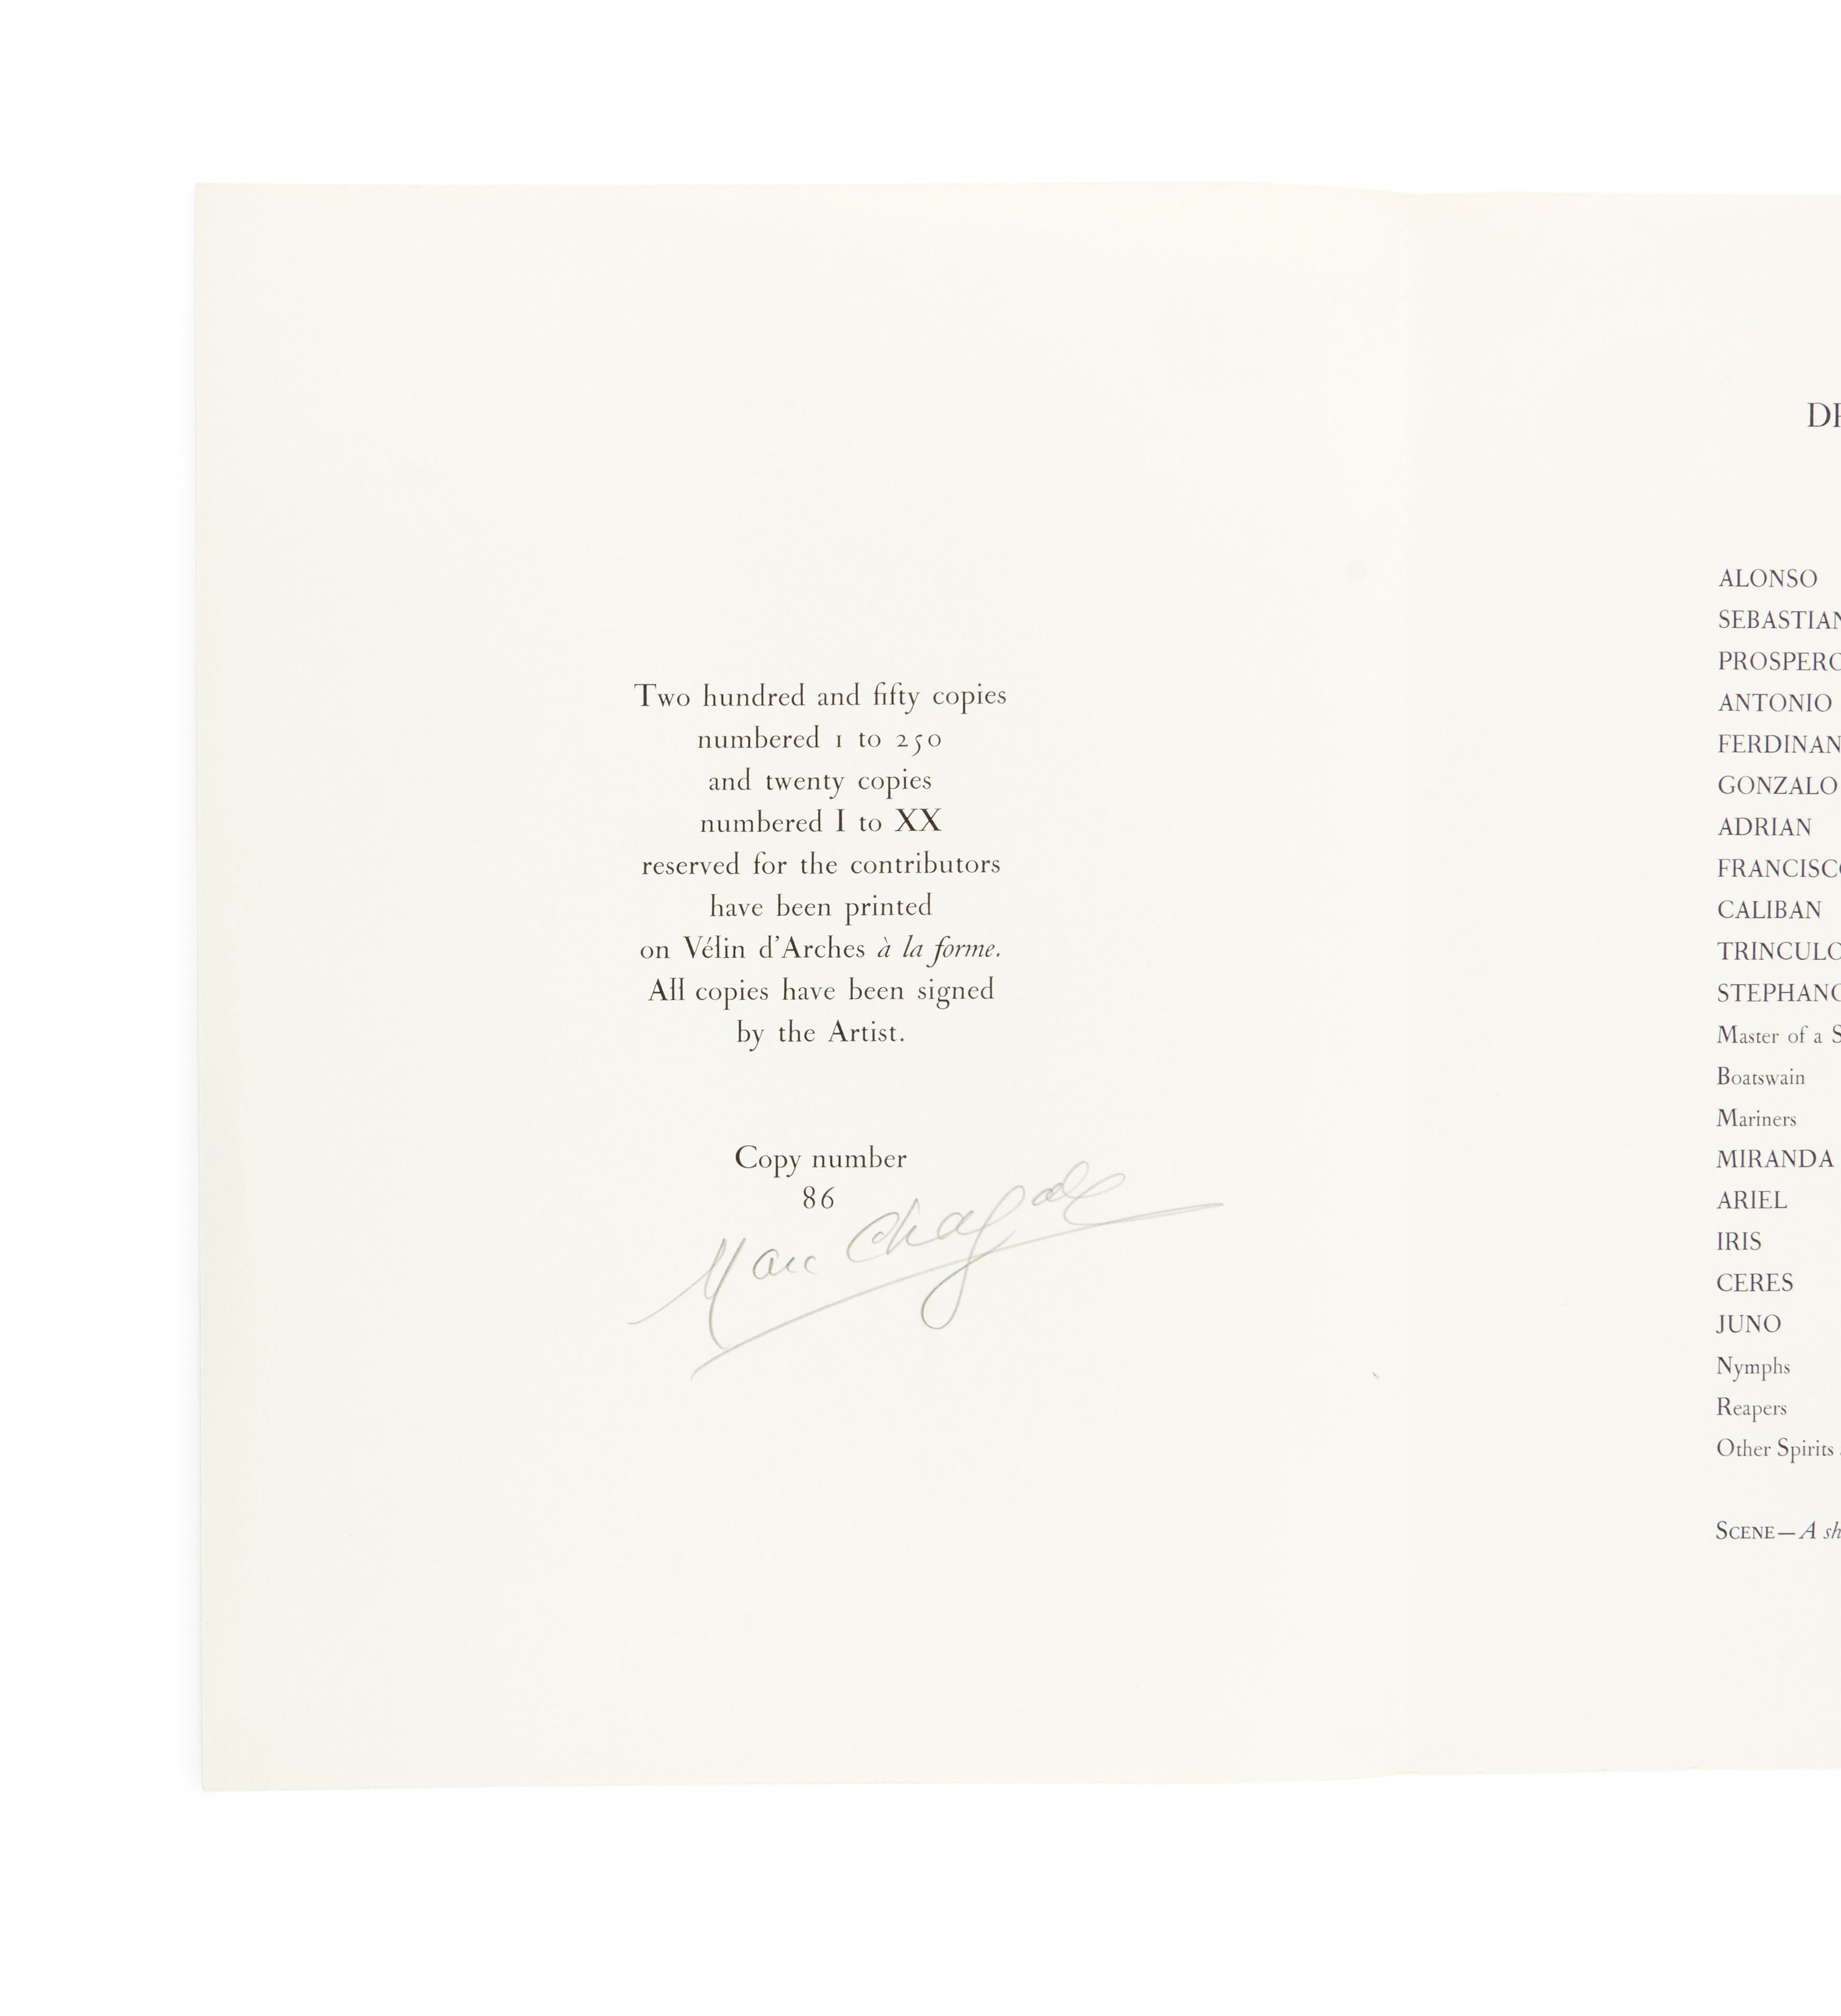 Two hundred and fifty copies
numbered 1 to 250
and twenty copies
numbered I to XX
reserved for the contributors
have been printed
on Vélin d'Arches à la forme.
All copies have been signed
by the Artist.
Copy number
86
Marc Chagall
ALONSO
SEBASTIAN
PROSPERO
ANTONIO
FERDINAN
GONZALO
ADRIAN
FRANCISCO
CALIBAN
TRINCULO
STEPHANO
Master of a S
Boatswain
Mariners
MIRANDA
ARIEL
IRIS
CERES
JUNO
Nymphs
Reapers
Other Spirits
SCENE—A sh